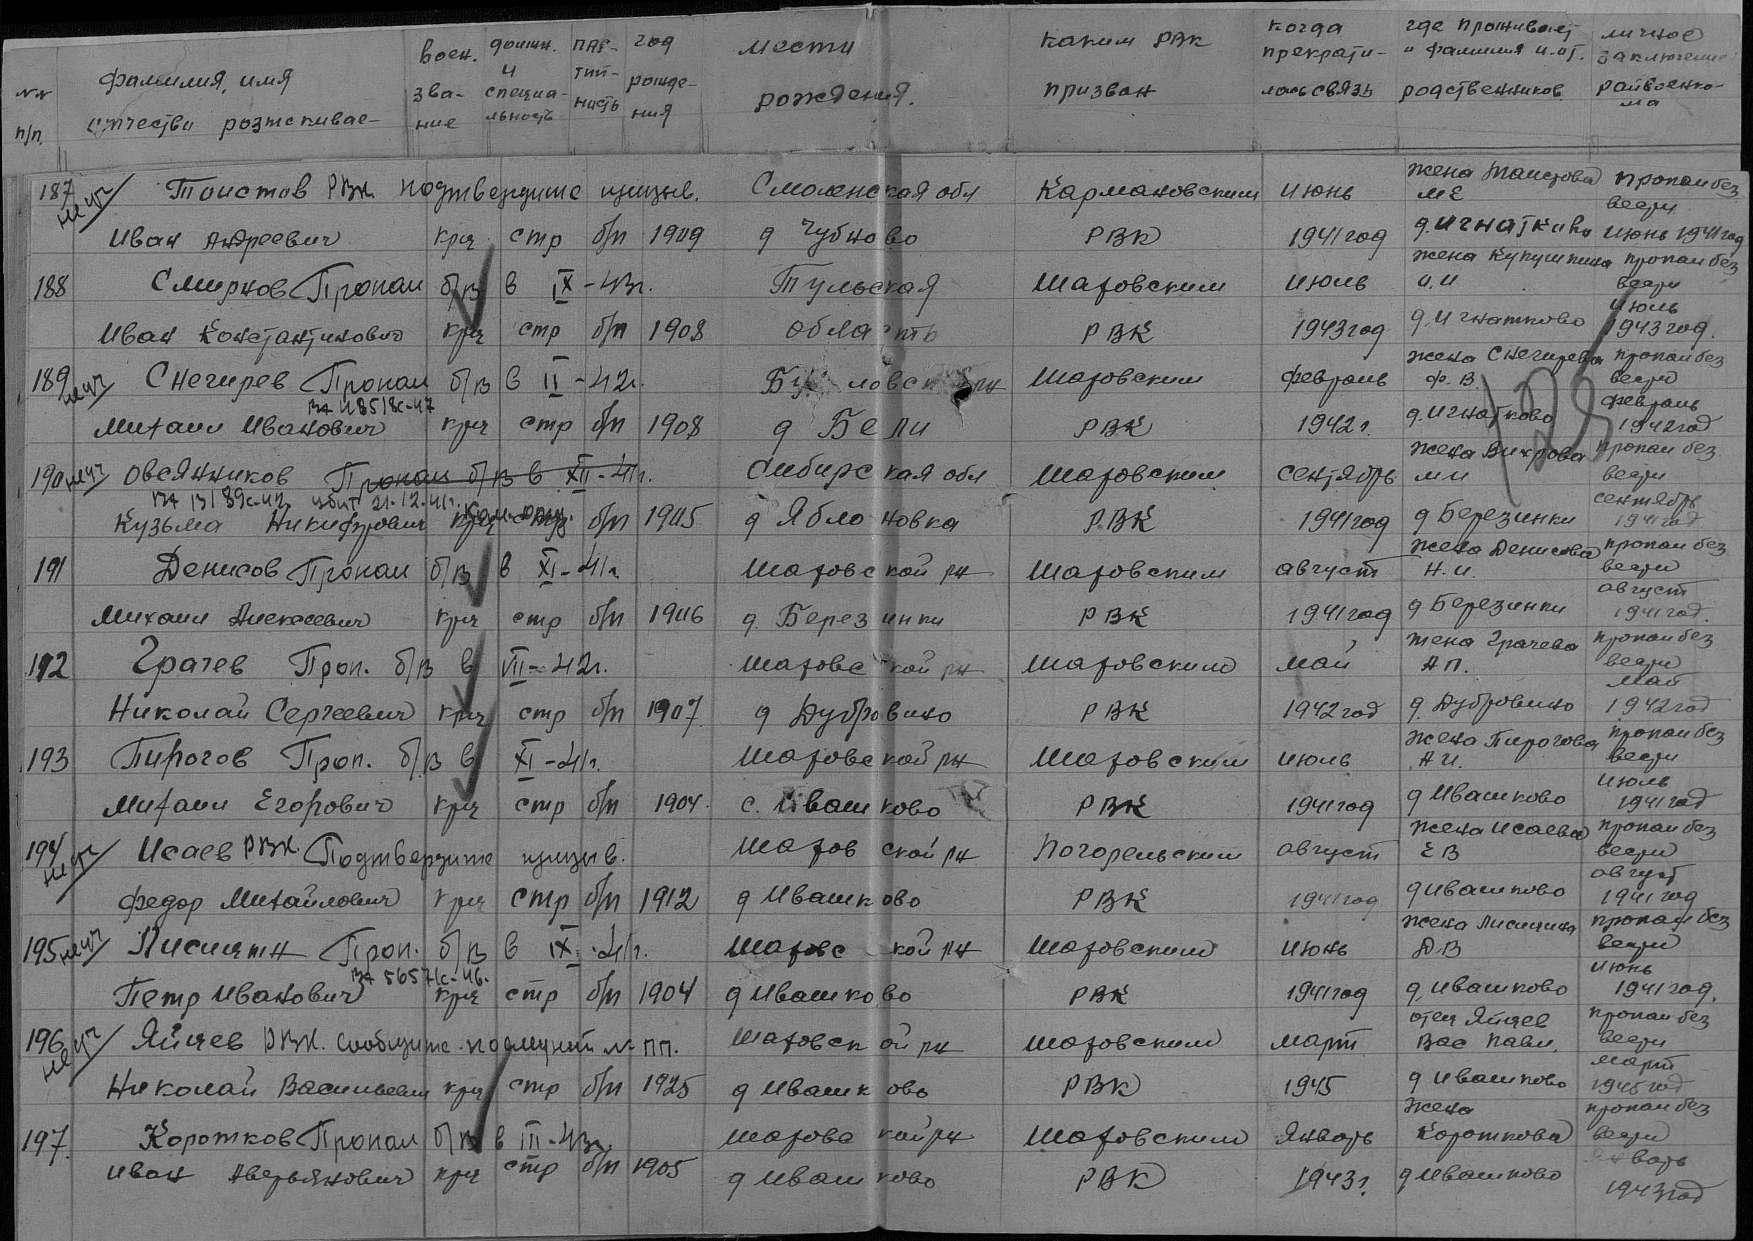 №№ п/п. фамилия, имя отчество розыскивае- воен. зва- ние должн. и специа- льность пар- тий- ность год рожде- ния место рождения. каким РВК призван когда прекрати- лась связь где проживает и фамилия и.от. родственников личное заключение райвоенко- ма
187 Тоистов РВК подтвердите призыв. Смоленская обл Кармановским июнь жена Таистова МЕ пропал без вести
Иван Андреевич кра стр б/п 1909 д Чубново РВК 1941 год д. Игнатково июнь 1941 год
188 Смирнов Пропал б/в в IX-43г. Тульская Шаховским июль жена Кукушкина О.И пропал без вести
Иван Константинович кра стр б/п 1908 область РВК 1943 год д. Игнатково июль 1943 год.
189 Снегирев Пропал б/в в II-42г. Шаховским февраль жена Снегирева Ф.В. пропал без вести
вх 48518с-47
Михаил Иванович кра стр б/п 1908 д Бели РВК 1942 г. д. Игнатково февраль 1942 год
190 Овсянников Пропал б/в в XII-41г. Сибирская обл Шаховским сентябрь жена Вихрова МИ пропал без вести
убит 21.12.41г.
Кузьма Никифорович кра стр б/п 1905 д Яблоновка РВК 1941 год д Березинки сентябрь 1941 год
191 Денисов Пропал б/в в XI-41г. Шаховской рн Шаховским август жена Денисова Н.И. пропал без вести
Михаил Алексеевич кра стр б/п 1906 д. Березинки РВК 1941 год д Березинки август 1941 год.
192 Грачев Проп. б/в в VII-42г. Шаховской рн Шаховским май жена Грачева АП. пропал без вести
Николай Сергеевич кра стр б/п 1907 д Дубровино РВК 1942 год д. Дубровино май 1942 год
193 Пирогов Проп. б/в в XI-41г. Шаховской рн Шаховским июль жена Пирогова АИ. пропал без вести
Михаил Егорович кра стр б/п 1904. с. Ивашково РВК 1941 год д Ивашково июль 1941 год
194 Исаев РВК. Подтвердите призыв. Шаховской рн Погорельским август жена Исаева ЕВ пропал без вести
Федор Михайлович кра стр б/п 1912 д Ивашково РВК 1941 год д Ивашково август 1941 год
195 Лисицин Проп. б/в в IX-41г. Шаховской рн Шаховским июнь жена Лисицина ДВ пропал без вести
вх 56571с-46.
Петр Иванович кра стр б/п 1904 д Ивашково РВК 1941 год д. Ивашково июнь 1941 год.
196 Яйцев РВК. сообщите последний № пп. Шаховской рн Шаховским март отец Яйцев Вас Павл. пропал без вести
Николай Васильевич кра стр б/п 1925 д Ивашково РВК 1945 д Ивашково март 1945 год
197. Коротков Пропал б/в в III-43г. Шаховской рн Шаховским Январь жена Короткова пропал без вести
Иван Аверьянович кра стр б/п 1905 д Ивашково РВК 1943 г. д Ивашково январь 1943 год